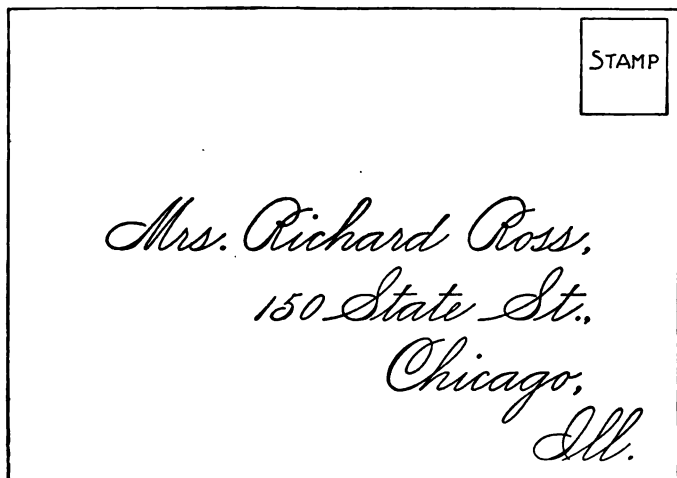 STAMP
Mrs. Richard Ross,
150 State St.,
Chicago,
Ill.